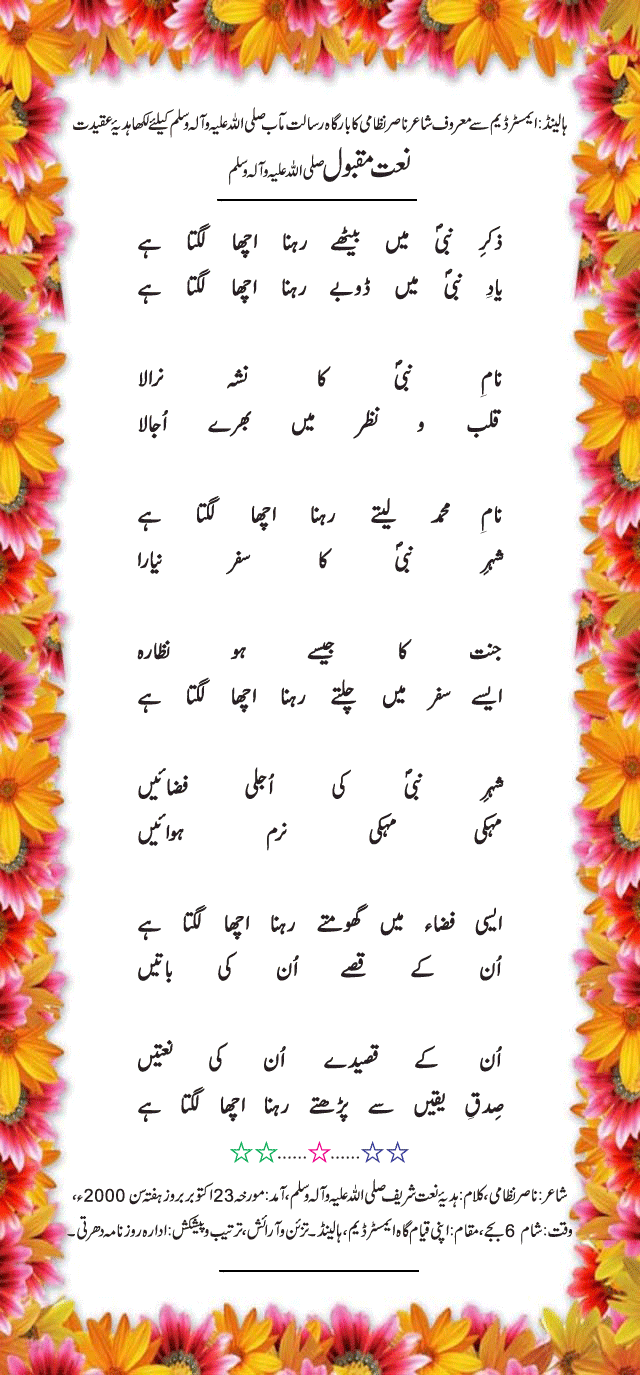 ہالینڈ: ایمسٹرڈیم سے معروف شاعر ناصر نظامی کا بارگاہ رسالت مآب صلی اللہ علیہ وآلہ وسلم کیلئے لکھا ہدیۂ عقیدت
نعت مقبول صلی اللہ علیہ وآلہ وسلم
ذکرِ نبیؐ میں بیٹھے رہنا اچھا لگتا ہے
یادِ نبیؐ میں ڈوبے رہنا اچھا لگتا ہے
نامِ نبیؐ کا نشہ نرالا
قلب و نظر میں بھرے اُجالا
نامِ محمد لیتے رہنا اچھا لگتا ہے
شہرِ نبیؐ کا سفر نیارا
جنت کا جیسے ہو نظارہ
ایسے سفر میں چلتے رہنا اچھا لگتا ہے
شہرِ نبیؐ کی اُجلی فضائیں
مہکی مہکی نرم ہوائیں
ایسی فضاء میں گھومتے رہنا اچھا لگتا ہے
اُن کے قصے اُن کی باتیں
اُن کے قصیدے اُن کی نعتیں
صِدقِ یقیں سے پڑھتے رہنا اچھا لگتا ہے
☆☆......☆......☆☆
شاعر: ناصر نظامی، کلام: ہدیۂ نعت شریف صلی اللہ علیہ وآلہ وسلم، آمد: مورخہ 23 اکتوبر بروز ہفتہ سن 2000ء،
وقت: شام 6 بجے، مقام: اپنی قیام گاہ ایمسٹرڈیم، ہالینڈ۔ تزئن و آرائش، ترتیب و پیشکش: ادارہ روزنامہ دھرتی۔